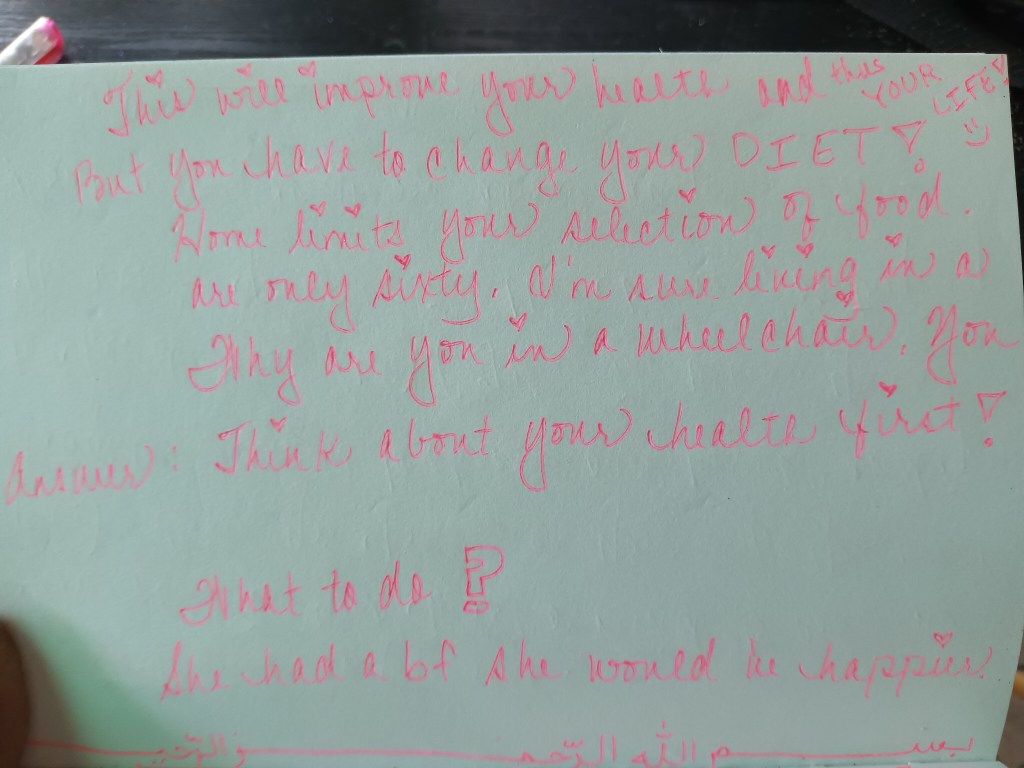 This will improve your health and thus YOUR LIFE! :)
But you have to change your DIET!
Home limits your selection of food.
are only sixty. I'm sure living in a
Why are you in a wheelchair. You
Answer: Think about your health first!
What to do?
She had a bf she would be happier.
بســـــم الله الرّحمـــن والرّحيـــ